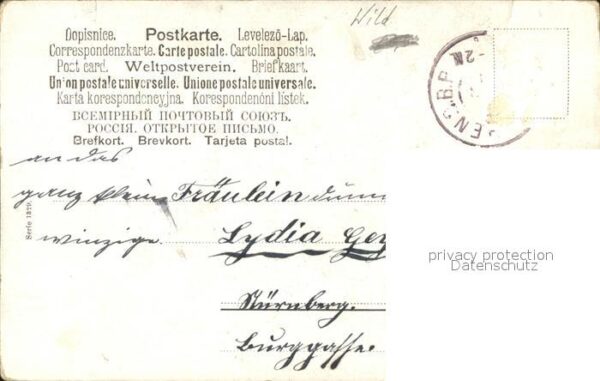 Wild
Dopisnice. Postkarte. Levelező-Lap.
Correspondenzkarte. Carte postale. Cartolina postale.
Post card. Weltpostverein. Briefkaart.
Union postale universelle. Unione postale universale.
Karta korespondencyjna. Korespondenćni lístek.
ВСЕМІРНЫЙ ПОЧТОВЫЙ СОЮЗЪ.
РОССІЯ. ОТКРЫТОЕ ПИСЬМО.
Brefkort. Brevkort. Tarjeta postal.
an das
ganz kleine Fräulein
winzige. Lydia
Nürnberg.
Burggasse.
Serie 1329.
privacy protection
Datenschutz